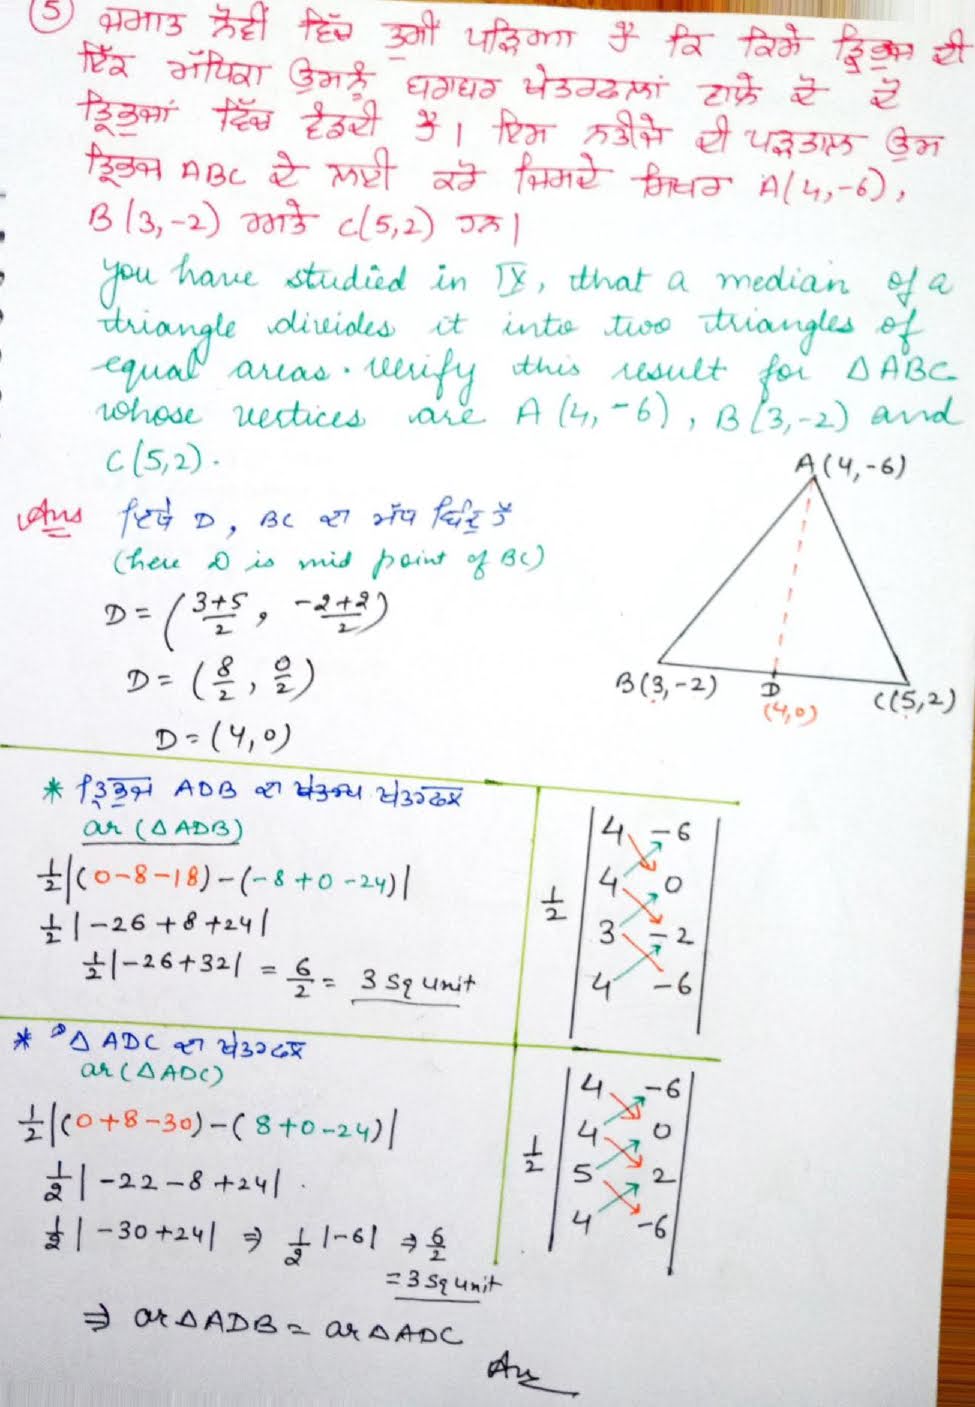 (5) ਜਮਾਤ ਨੌਵੀਂ ਵਿੱਚ ਤੁਸੀਂ ਪੜ੍ਹਿਆ ਹੈ ਕਿ ਕਿਸੇ ਤ੍ਰਿਭੁਜ ਦੀ
ਇੱਕ ਮੱਧਿਕਾ ਉਸਨੂੰ ਬਰਾਬਰ ਖੇਤਰਫਲਾਂ ਵਾਲੇ ਦੋ
ਤ੍ਰਿਭੁਜਾਂ ਵਿੱਚ ਵੰਡਦੀ ਹੈ। ਇਸ ਨਤੀਜੇ ਦੀ ਪੜਤਾਲ ਉਸ
ਤ੍ਰਿਭੁਜ ABC ਦੇ ਲਈ ਕਰੋ ਜਿਸਦੇ ਸਿਖਰ A(4,-6),
B(3,-2) ਅਤੇ C(5,2) ਹਨ।
you have studied in IX, that a median of a
triangle divides it into two triangles of
equal areas. Verify this result for △ABC
whose vertices are A(4,-6), B(3,-2) and
C(5,2).
A(4,-6)
Ans ਇੱਥੇ D, BC ਦਾ ਮੱਧ ਬਿੰਦੂ ਹੈ
(here D is mid point of BC)
D = (3+5/2, -2+2/2)
D = (8/2, 0/2)
D = (4,0)
B(3,-2) D C(5,2)
(4,0)
* ਤ੍ਰਿਭੁਜ ADB ਦਾ ਖੇਤਰਫਲ
ar(△ADB)
1/2|(0-8-18)-(-8+0-24)|
1/2|-26+8+24|
1/2|-26+32| = 6/2 = 3 Sq unit
4 -6
4 0
1/2
3 -2
4 -6
* △ADC ਦਾ ਖੇਤਰਫਲ
ar(△ADC)
1/2|(0+8-30)-(8+0-24)|
1/2|-22-8+24|.
1/2|-30+24| ⇒ 1/2|-6| ⇒ 6/2
= 3 Sq unit
4 -6
4 0
1/2
5 2
4 -6
⇒ ar△ADB = ar△ADC
Ans